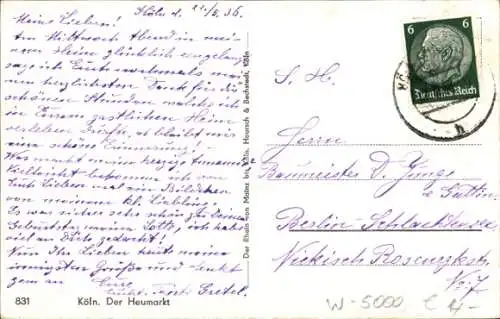 Köln d. 22/5. 36.
Meine Lieben!
Am Mittwoch Abend in mei-
nem Heim glücklich eingelangt
sage ich Euch nochmals mei-
nen herzlichsten Dank für die
schönen Stunden welche ich
in Eurem gastlichen Heim
verleben durfte, es bleibt mir
eine schöne Erinnerung!
Was macht meine herzige
Vielleicht bekomme ich von
Euch Lieben mal ein Bildchen
von meinem kl. Liebling.
Es war sicher sehr schön zu deinem
Geburtstag meine Lotte, ich habe
viel an Euch gedacht!
Nun Ihr Lieben heute meine
innigsten Grüße und
gern an Eure
Gretel.
831 Köln. Der Heumarkt
Der Rhein von Mainz bis Köln, Hoursch & Bechstedt, Köln
6 6
Deutsches Reich
S. H.
Herrn
Baumeister D. Junge
u Gattin
Berlin-
No 7
W-5000 € 4,-